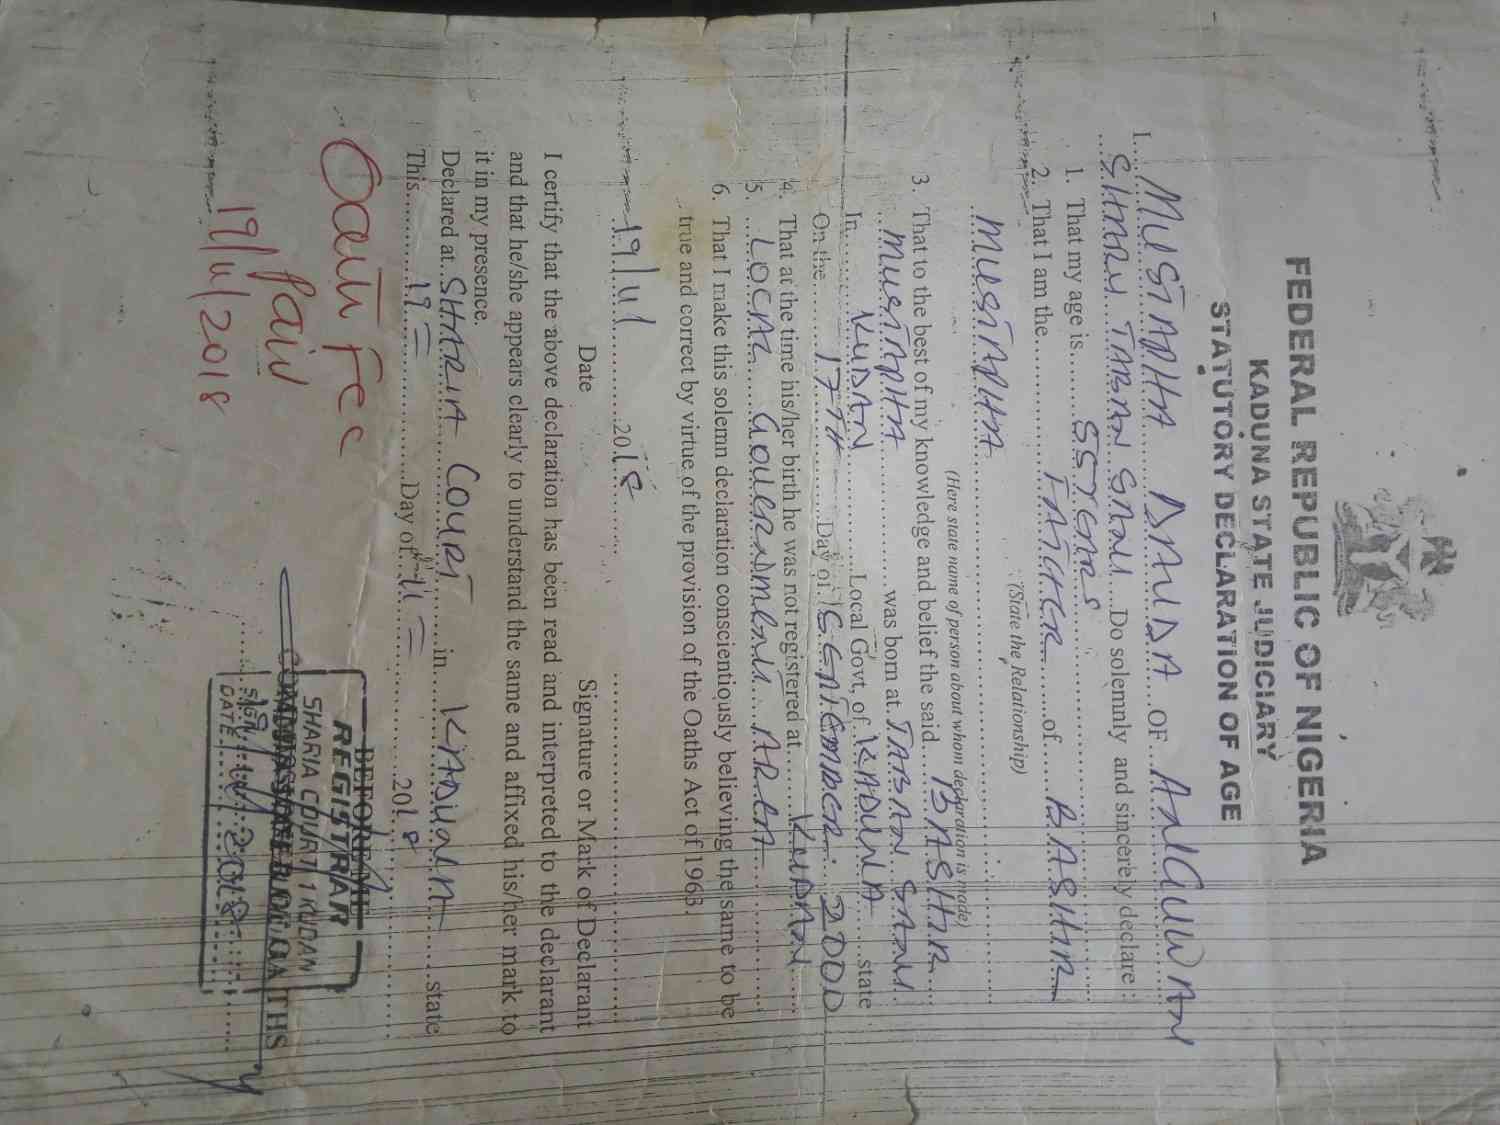 FEDERAL REPUBLIC OF NIGERIA
KADUNA STATE JUDICIARY
STATUTORY DECLARATION OF AGE
I......MUSTAPHA DAUDA...OF...ANGUWAN
...SHINRU TABAN SANI...Do solemnly and sincerely declare :
1. That my age is......55YEARS
2. That I am the............FATHER......of......BASHIR
(State the Relationship)
...MUSTAPHA
(Here state name of person about whom declaration is made)
3. That to the best of my knowledge and belief the said......BASHIR
...MUSTAPHA......was born at TABAN SANI
In......KUDAN......Local Govt, of KADUNA......state
On the......17TH......Day of SEPTEMBER 2000
4. That at the time his/her birth he was not registered at......KUDAN
5. ...LOCAL GOVERNMENT AREA
6. That I make this solemn declaration conscientiously believing the same to be
true and correct by virtue of the provision of the Oaths Act of 1963.
......19/11/......2018
Date
Signature or Mark of Declarant
I certify that the above declaration has been read and interpreted to the declarant
and that he/she appears clearly to understand the same and affixed his/her mark to
it in my presence.
Declared at SHARIA COURT......in......KADUNA......state
This......19=......Day of 11=......2018
BEFORE ME
COMMISSIONER FOR OATHS
REGISTRAR
SHARIA COURT 1 KUDAN
SIGN
DATE 19/11/2018
Oath Fee
Paid
19/11/2018